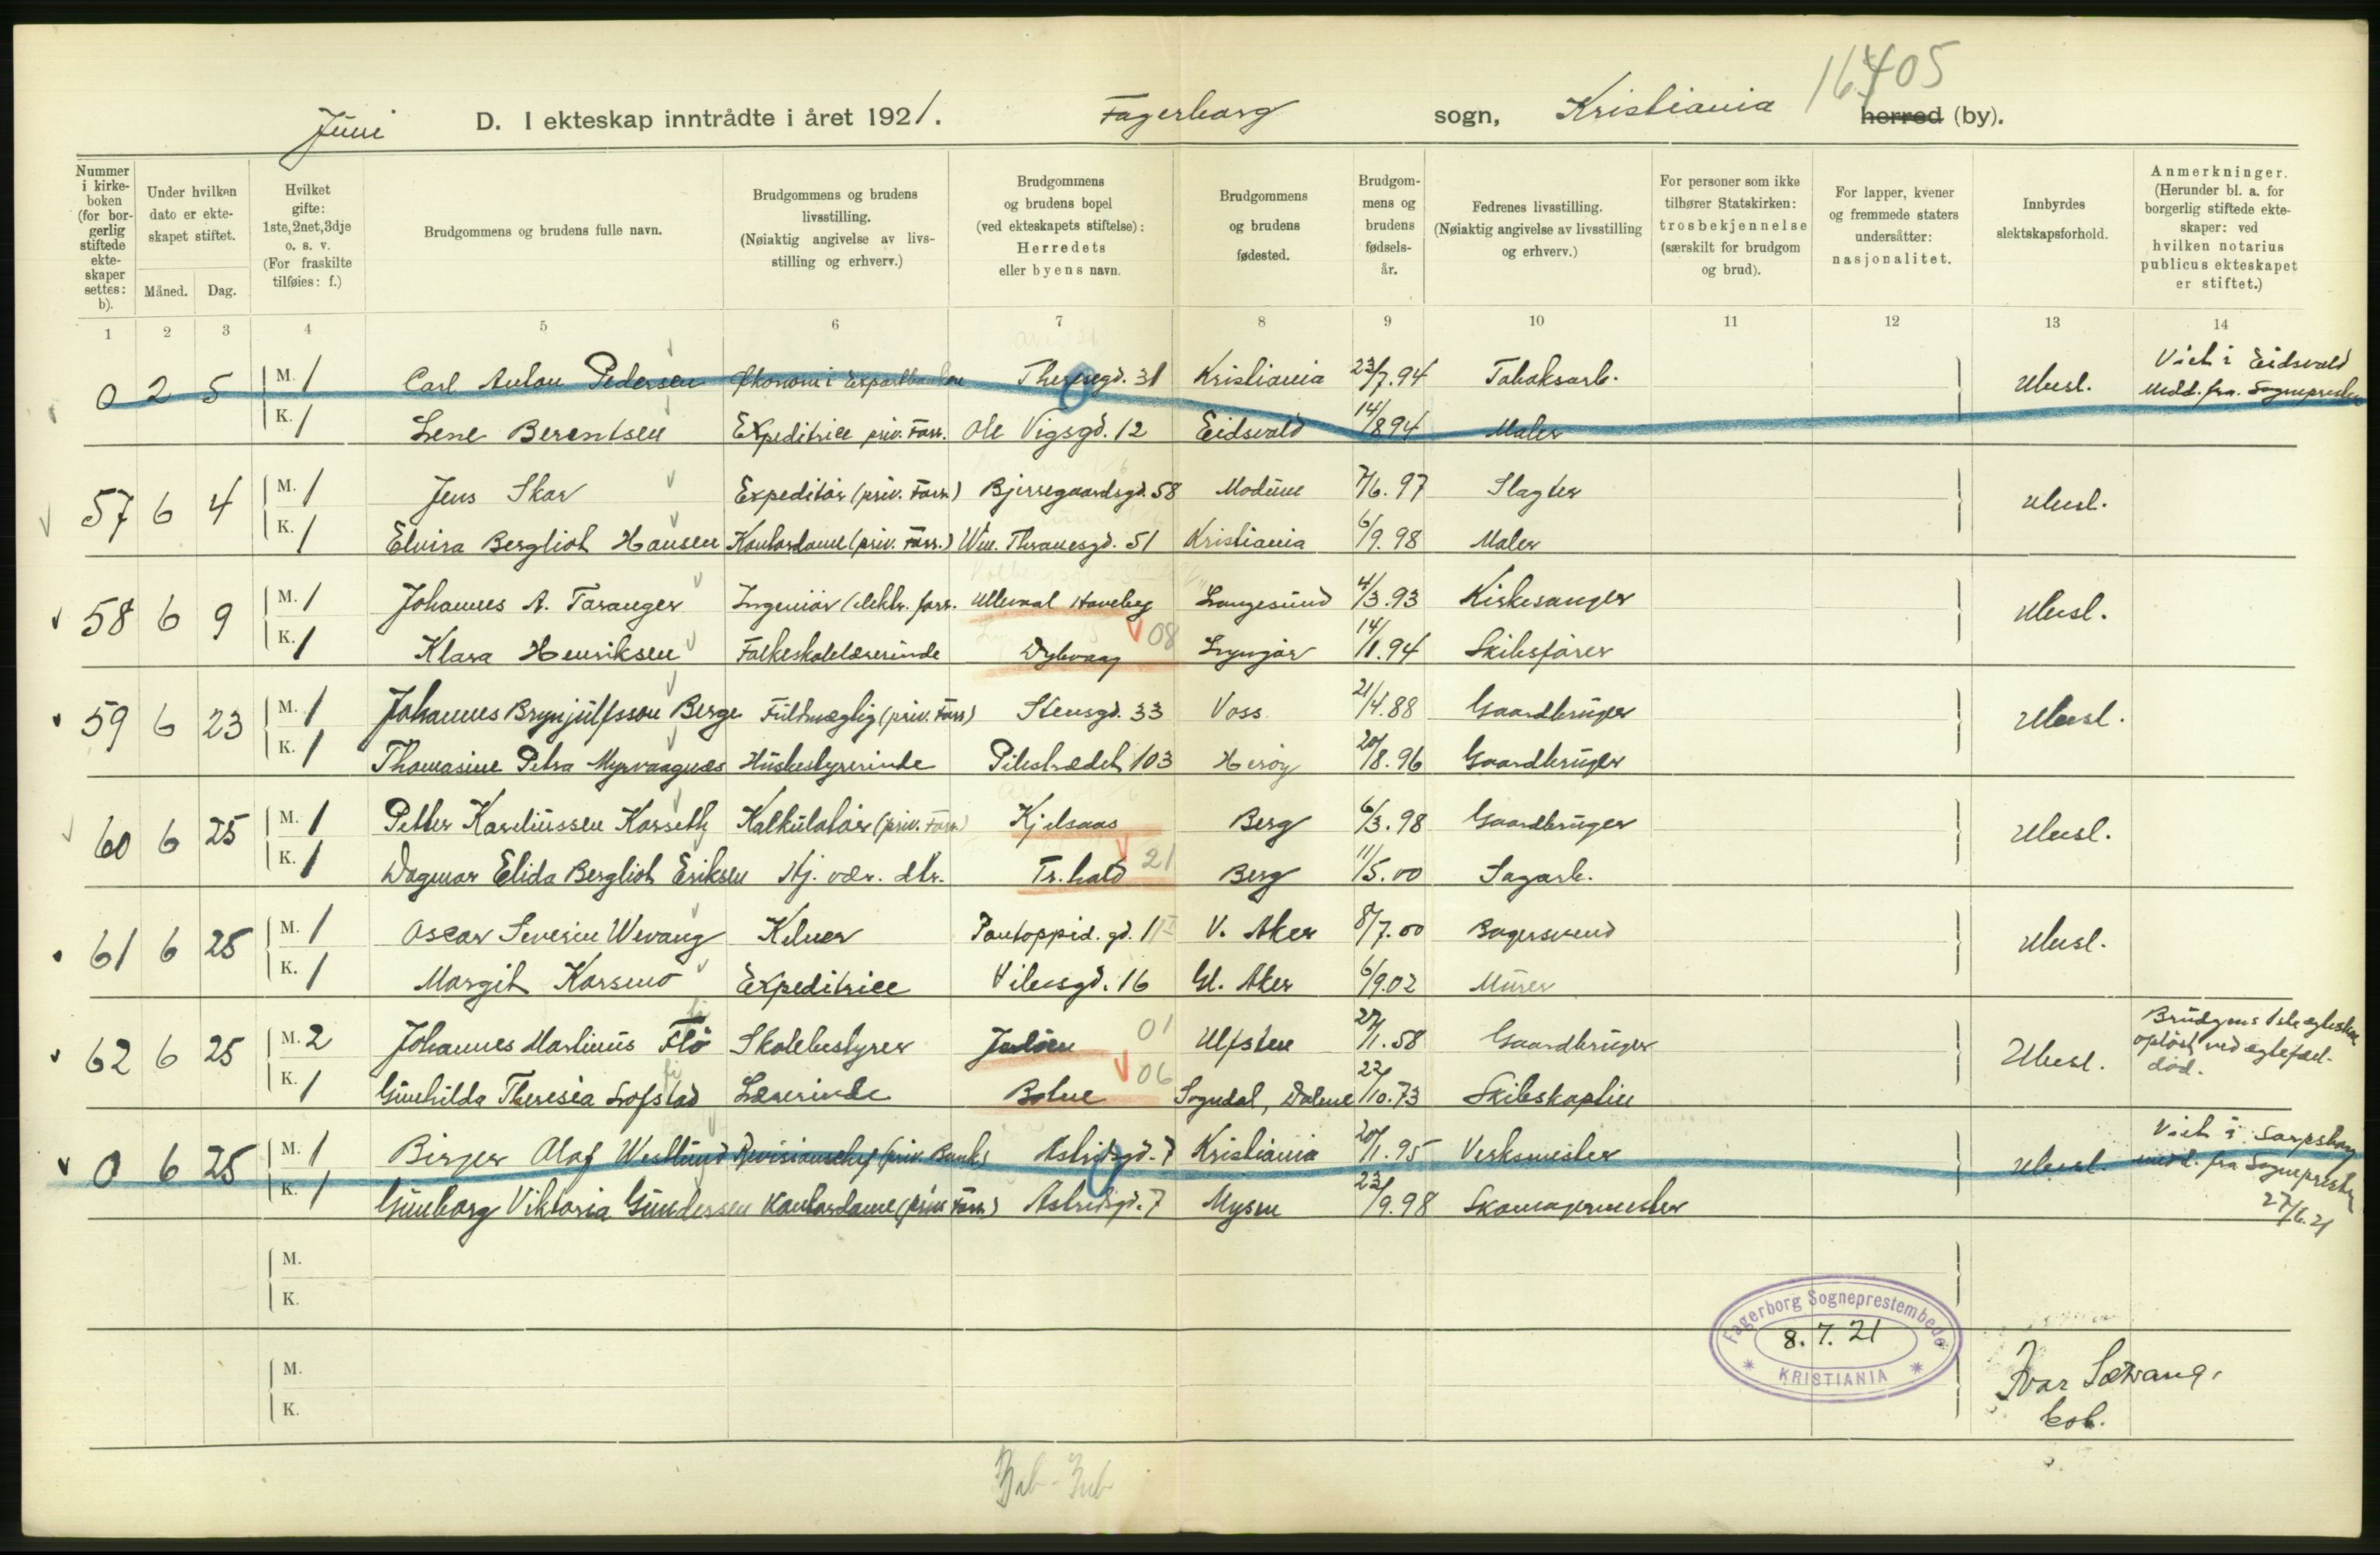 16405
Juni D. I ekteskap inntrådte i året 1921. Fagerborg sogn, Kristiania herred (by).
Nummer i kirkeboken (for borgerlig stiftede ekteskaper settes: b).
Under hvilken dato er ekteskapet stiftet.
Måned. Dag.
Hvilket gifte: 1ste, 2net, 3dje o. s. v. (For fraskilte tilføies: f.)
Brudgommens og brudens fulle navn.
Brudgommens og brudens livsstilling. (Nøiaktig angivelse av livsstilling og erhverv.)
Brudgommens og brudens bopel (ved ekteskapets stiftelse): Herredets eller byens navn.
Brudgommens og brudens fødested.
Brudgommens og brudens fødselsår.
Fedrenes livsstilling. (Nøiaktig angivelse av livsstilling og erhverv.)
For personer som ikke tilhører Statskirken: trosbekjennelse (særskilt for brudgom og brud).
For lapper, kvener og fremmede staters undersåtter: nasjonalitet.
Innbyrdes slektskapsforhold.
Anmerkninger. (Herunder bl. a. for borgerlig stiftede ekteskaper: ved hvilken notarius publicus ekteskapet er stiftet.)
1 2 3 4 5 6 7 8 9 10 11 12 13 14
0 2 5 M. 1 Carl Anton Pedersen Theresegd. 31 Kristiania 23/7.94 Tobaksarb. Ubesl. Viet i Eidsvold medd. fra Sognepresten
K. 1 Lene Berentsen Expeditrice priv. Forr. Ole Vigsgd. 12 Eidsvold 14/8 94 Maler
57 6 4 M. 1 Jens Skar Expeditør (priv. Forr.) Bjerregaardsgd. 58 Modum 7/6.97 Slagter Ubesl.
K. 1 Elvira Bergliot Hansen Kontordame (priv. Forr.) Wm. Thranesgd. 51 Kristiania 6/9.98 Maler
58 6 9 M. 1 Johannes A. Taranger Ingeniør (elektr. forr. Ullevaal Haveby Langesund 4/3.93 Kirkesanger Ubesl.
K. 1 Klara Henriksen Folkeskolelærerinde Dybvaag 08 Lyngør 14/1.94 Skibsfører
59 6 23 M. 1 Johannes Brynjulfsson Berge Fuldmægtig (priv. Forr) Stensgd. 33 Voss 21/4.88 Gaardbruger Ubesl.
K. 1 Thomasine Petra Myrvaagnes Husbestyrerinde Pilestrædet 103 Herøy 20/8.96 Gaardbruger
60 6 25 M. 1 Petter Kareliussen Korseth Kalkulatør (priv. Forr) Kjelsaas Berg 6/3.98 Gaardbruger Ubesl.
K. 1 Dagmar Elida Bergliot Eriksen Hj. vær. dtr. Fr.hald 21 Berg 11/5.00 Sagarb.
61 6 25 M. 1 Oscar Severin Wevang Kelner Pontoppid. gd. 11 V. Aker 8/7.00 Bagersvend Ubesl.
K. 1 Margit Korsmo Expeditrice Vibesgd. 16 Gl. Aker 6/9.02 Murer
62 6 25 M. 2 Johannes Martinus Flö Skolebestyrer Jeløen 01 Ulfsten 27/1.58 Gaardbruger Ubesl. Brudgoms 1ste egteskap opløst ved egtefæl. død.
K. 1 Gunhilda Theresia Lofstad Lærerinde Botne 06 Sogndal, Dalene 22/10.73 Skibskaptein
0 6 25 M. 1 Birger Olaf Westlund Revisionschef (priv. Bank) Astridsgd. 7 Kristiania 20/1.95 Verksmester Ubesl. Viet i Sarpsborg medd. fra Sognepresten 27/6.21
K. 1 Gunborg Viktoria Gundersen Kontordame (priv Forr) Astridsgd. 7 Mysen 23/9.98 Skomagermester
M.
K.
M.
K.
Fagerborg Sogneprestembede
8.7.21
* KRISTIANIA *
Ivar Sætrang.